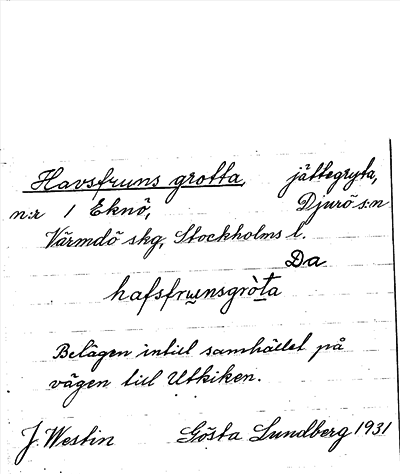 Havsfruns grotta, jättegryta,
n:r 1 Eknö, Djurö s:n
Värmdö skg, Stockholms l.
Da
hafsfrunsgròta
Belägen intill samhället på
vägen till Utkiken.
J. Westin Gösta Lundberg 1931